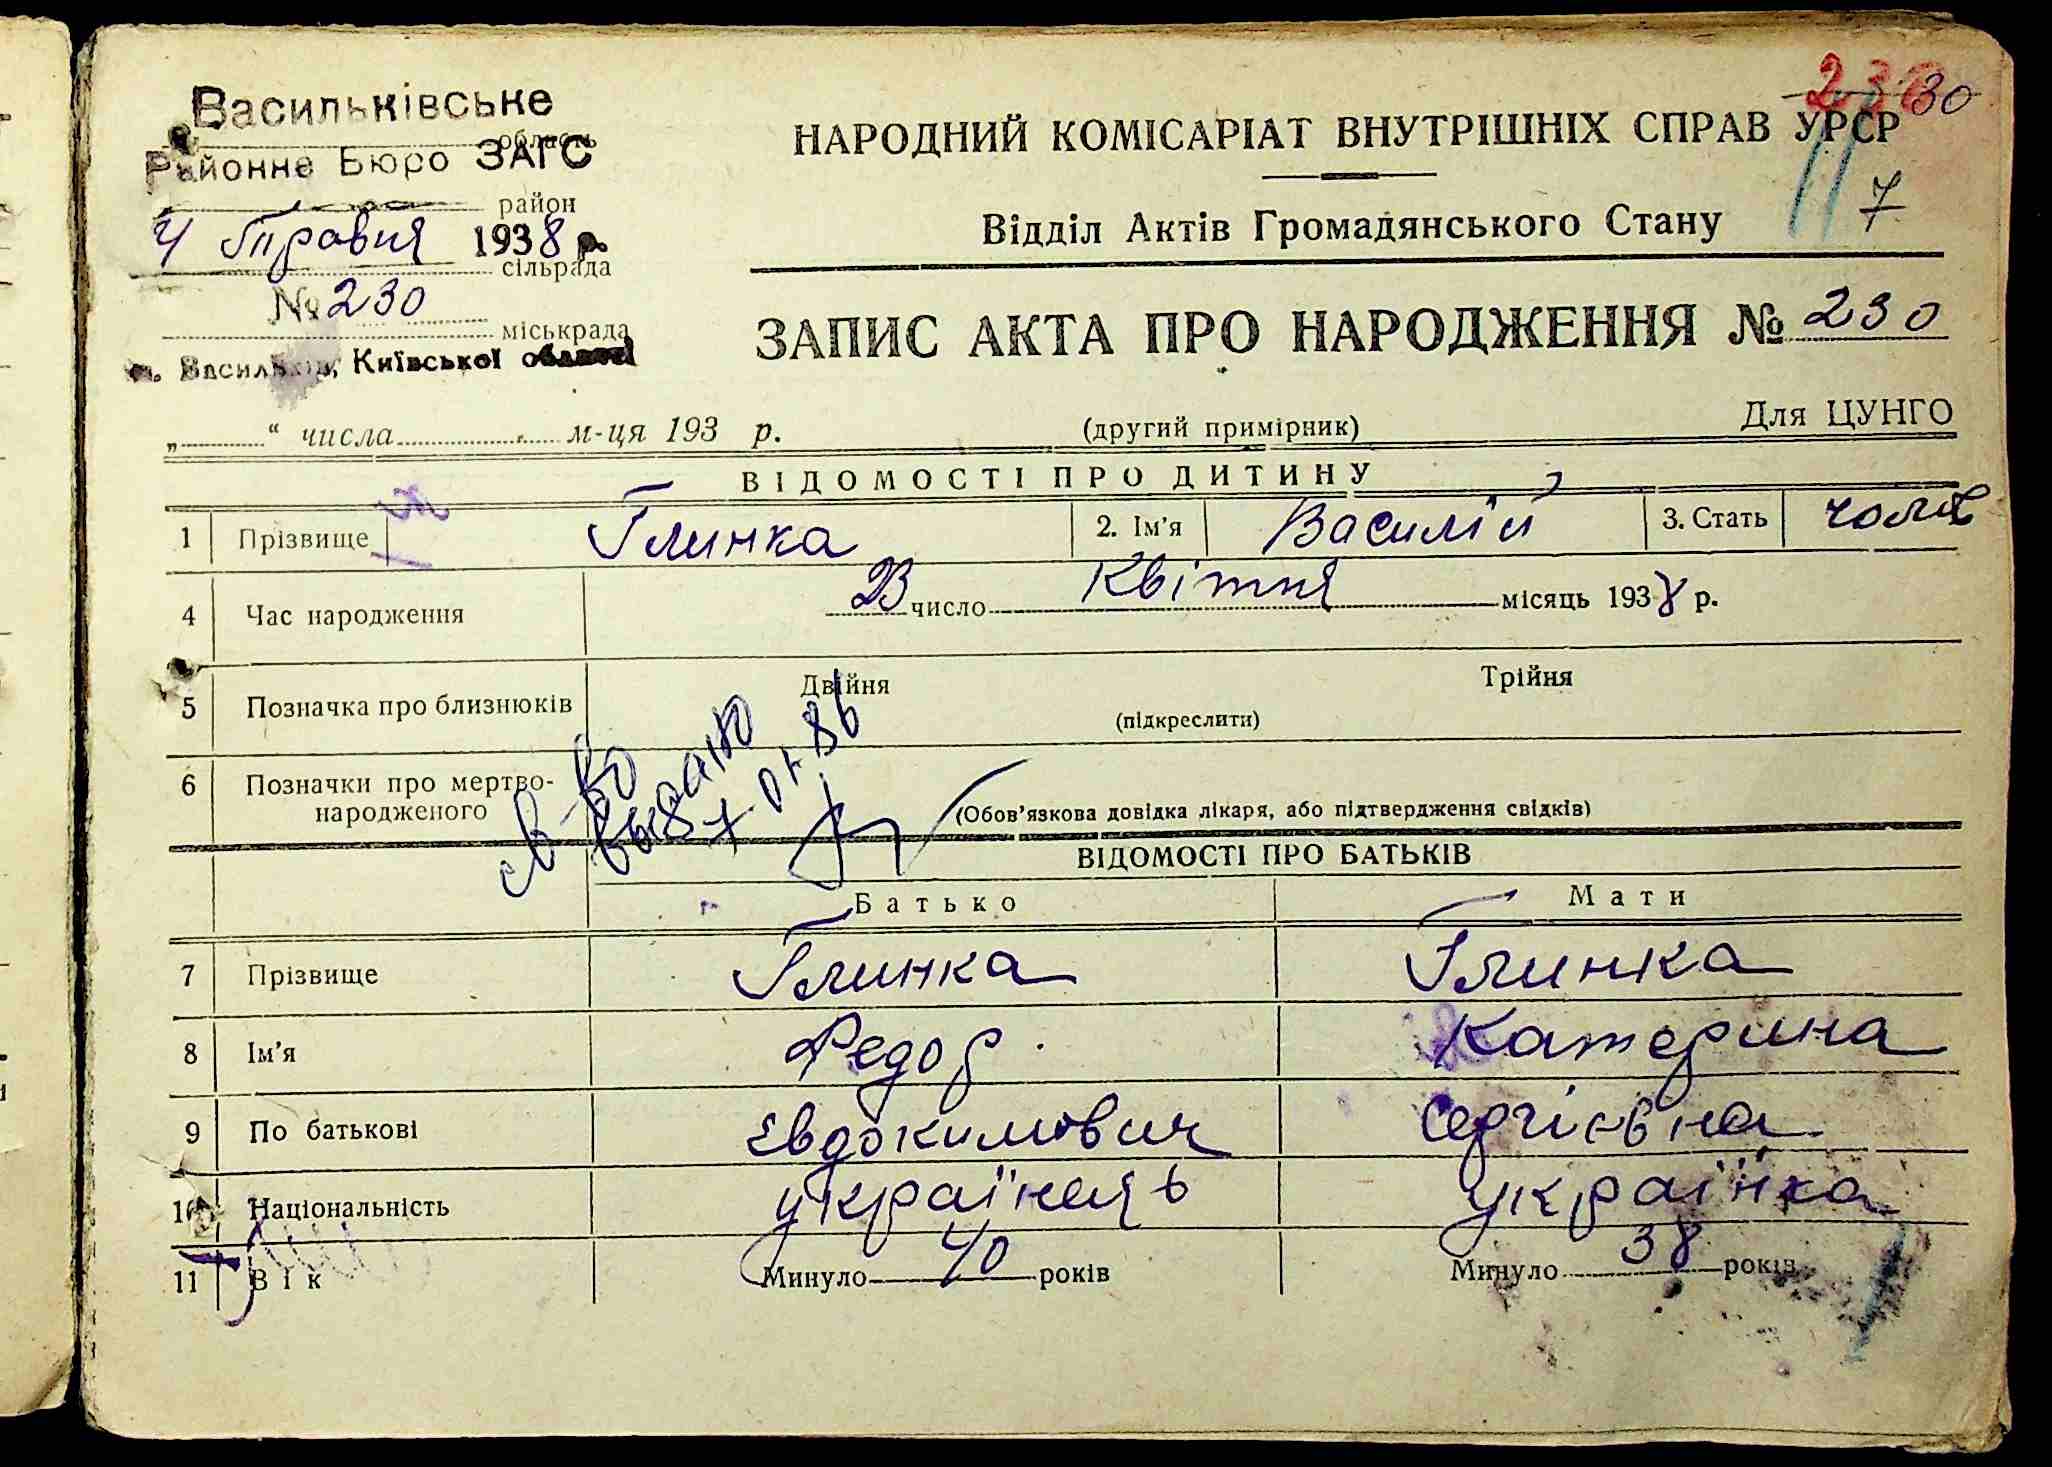 Васильківське
область
Районне Бюро ЗАГС
район
4 Травня 1938 р.
сільрада
№ 230
міськрада
м. Васильків, Київської області
230 30
НАРОДНИЙ КОМІСАРІАТ ВНУТРІШНІХ СПРАВ УРСР
7
Відділ Актів Громадянського Стану
ЗАПИС АКТА ПРО НАРОДЖЕННЯ № 230
„ “ числа м-ця 193 р.
(другий примірник)
Для ЦУНГО
ВІДОМОСТІ ПРО ДИТИНУ
1 Прізвище Глинка 2. Ім'я Василій 3. Стать чолов
4 Час народження 23 число Квітня місяць 1938 р.
5 Позначка про близнюків Двійня (підкреслити) Трійня
6 Позначки про мертво-
народженого (Обов'язкова довідка лікаря, або підтвердження свідків)
св-во
выдано
7-01-86
ВІДОМОСТІ ПРО БАТЬКІВ
Батько Мати
7 Прізвище Глинка Глинка
8 Ім'я Федор Катерина
9 По батькові Евдокимович Сергієвна
10 Національність українець українка
11 Вік Минуло 40 років Минуло 38 років